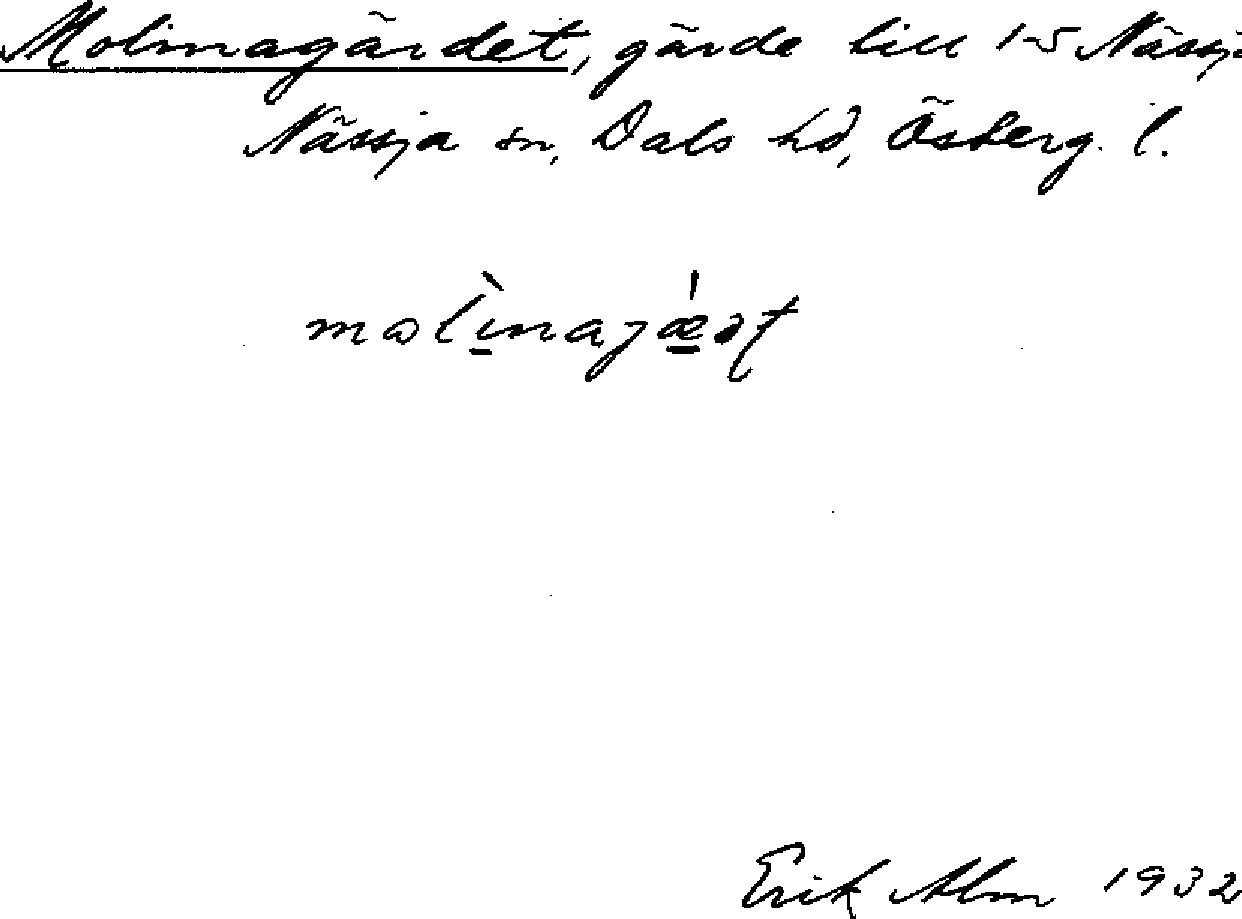 Molinagärdet, gärde till 1-5 Nässja
Nässja sn, Dals hd, Österg. l.
Erik Alm 1932